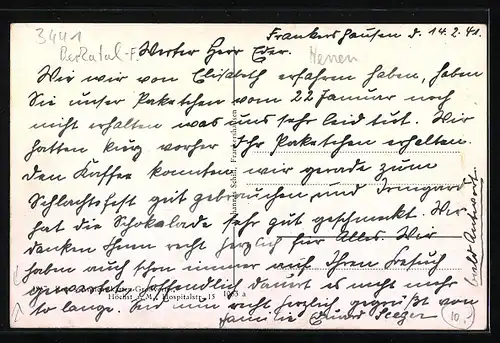 3441
Frankershausen d. 14.2.41.
Berkatal-F.
Werter Herr Eder.
Herren
Wie wir von Elisabeth erfahren haben, haben
Sie unser Paketchen vom 22 Januar noch
nicht erhalten was uns sehr leid tut. Wir
hatten kurz vorher Ihr Paketchen erhalten.
Den Kaffee konnten wir gerade zum
Schlachtefest gut gebrauchen und Irmgard
hat die Schokolade sehr gut geschmeckt. Wir
danken Ihnen recht herzlich für Alles. Wir
haben auch schon immer auf Ihren Besuch
gewartet, hoffendlich dauert es nicht mehr
so lange. Seien nun recht herzlich gegrüßt von
Familie Seeger
bald Antwort.
Frankershausen
Höchst a. M., Hospitalstr. 15
10.